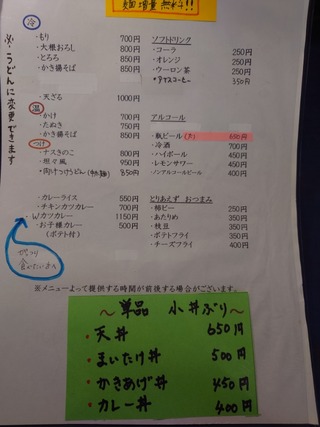 麺増量 無料!!
※うどんに変更できます
冷
・もり 700円
・大根おろし 800円
・とろろ 850円
・かき揚そば 850円
・天ざる 1000円
温
・かけ 700円
・たぬき 750円
・かき揚そば 850円
つけ
・ナスきのこ 800円
・坦々風 950円
・肉汁つけうどん 850円
・カレーライス 550円
・チキンカツカレー 700円
・Wカツカレー 1150円
・お子様カレー 500円
(ポテト付)
がっつり
食べたい人へ
ソフトドリンク
・コーラ 250円
・オレンジ 250円
・ウーロン茶 250円
*アイスコーヒー 350円
アルコール
・瓶ビール(大) 650円
・冷酒 700円
・ハイボール 400円
・レモンサワー 450円
・ノンアルコールビール 400円
とりあえず おつまみ
・柿ピー 250円
・あたりめ 350円
・枝豆 350円
・ポテトフライ 350円
・チーズフライ 400円
※メニューよって提供する時間が前後する場合がございます。
～単品 小丼ぶり～
・天丼 650円
・まいたけ丼 500円
・かきあげ丼 450円
・カレー丼 400円